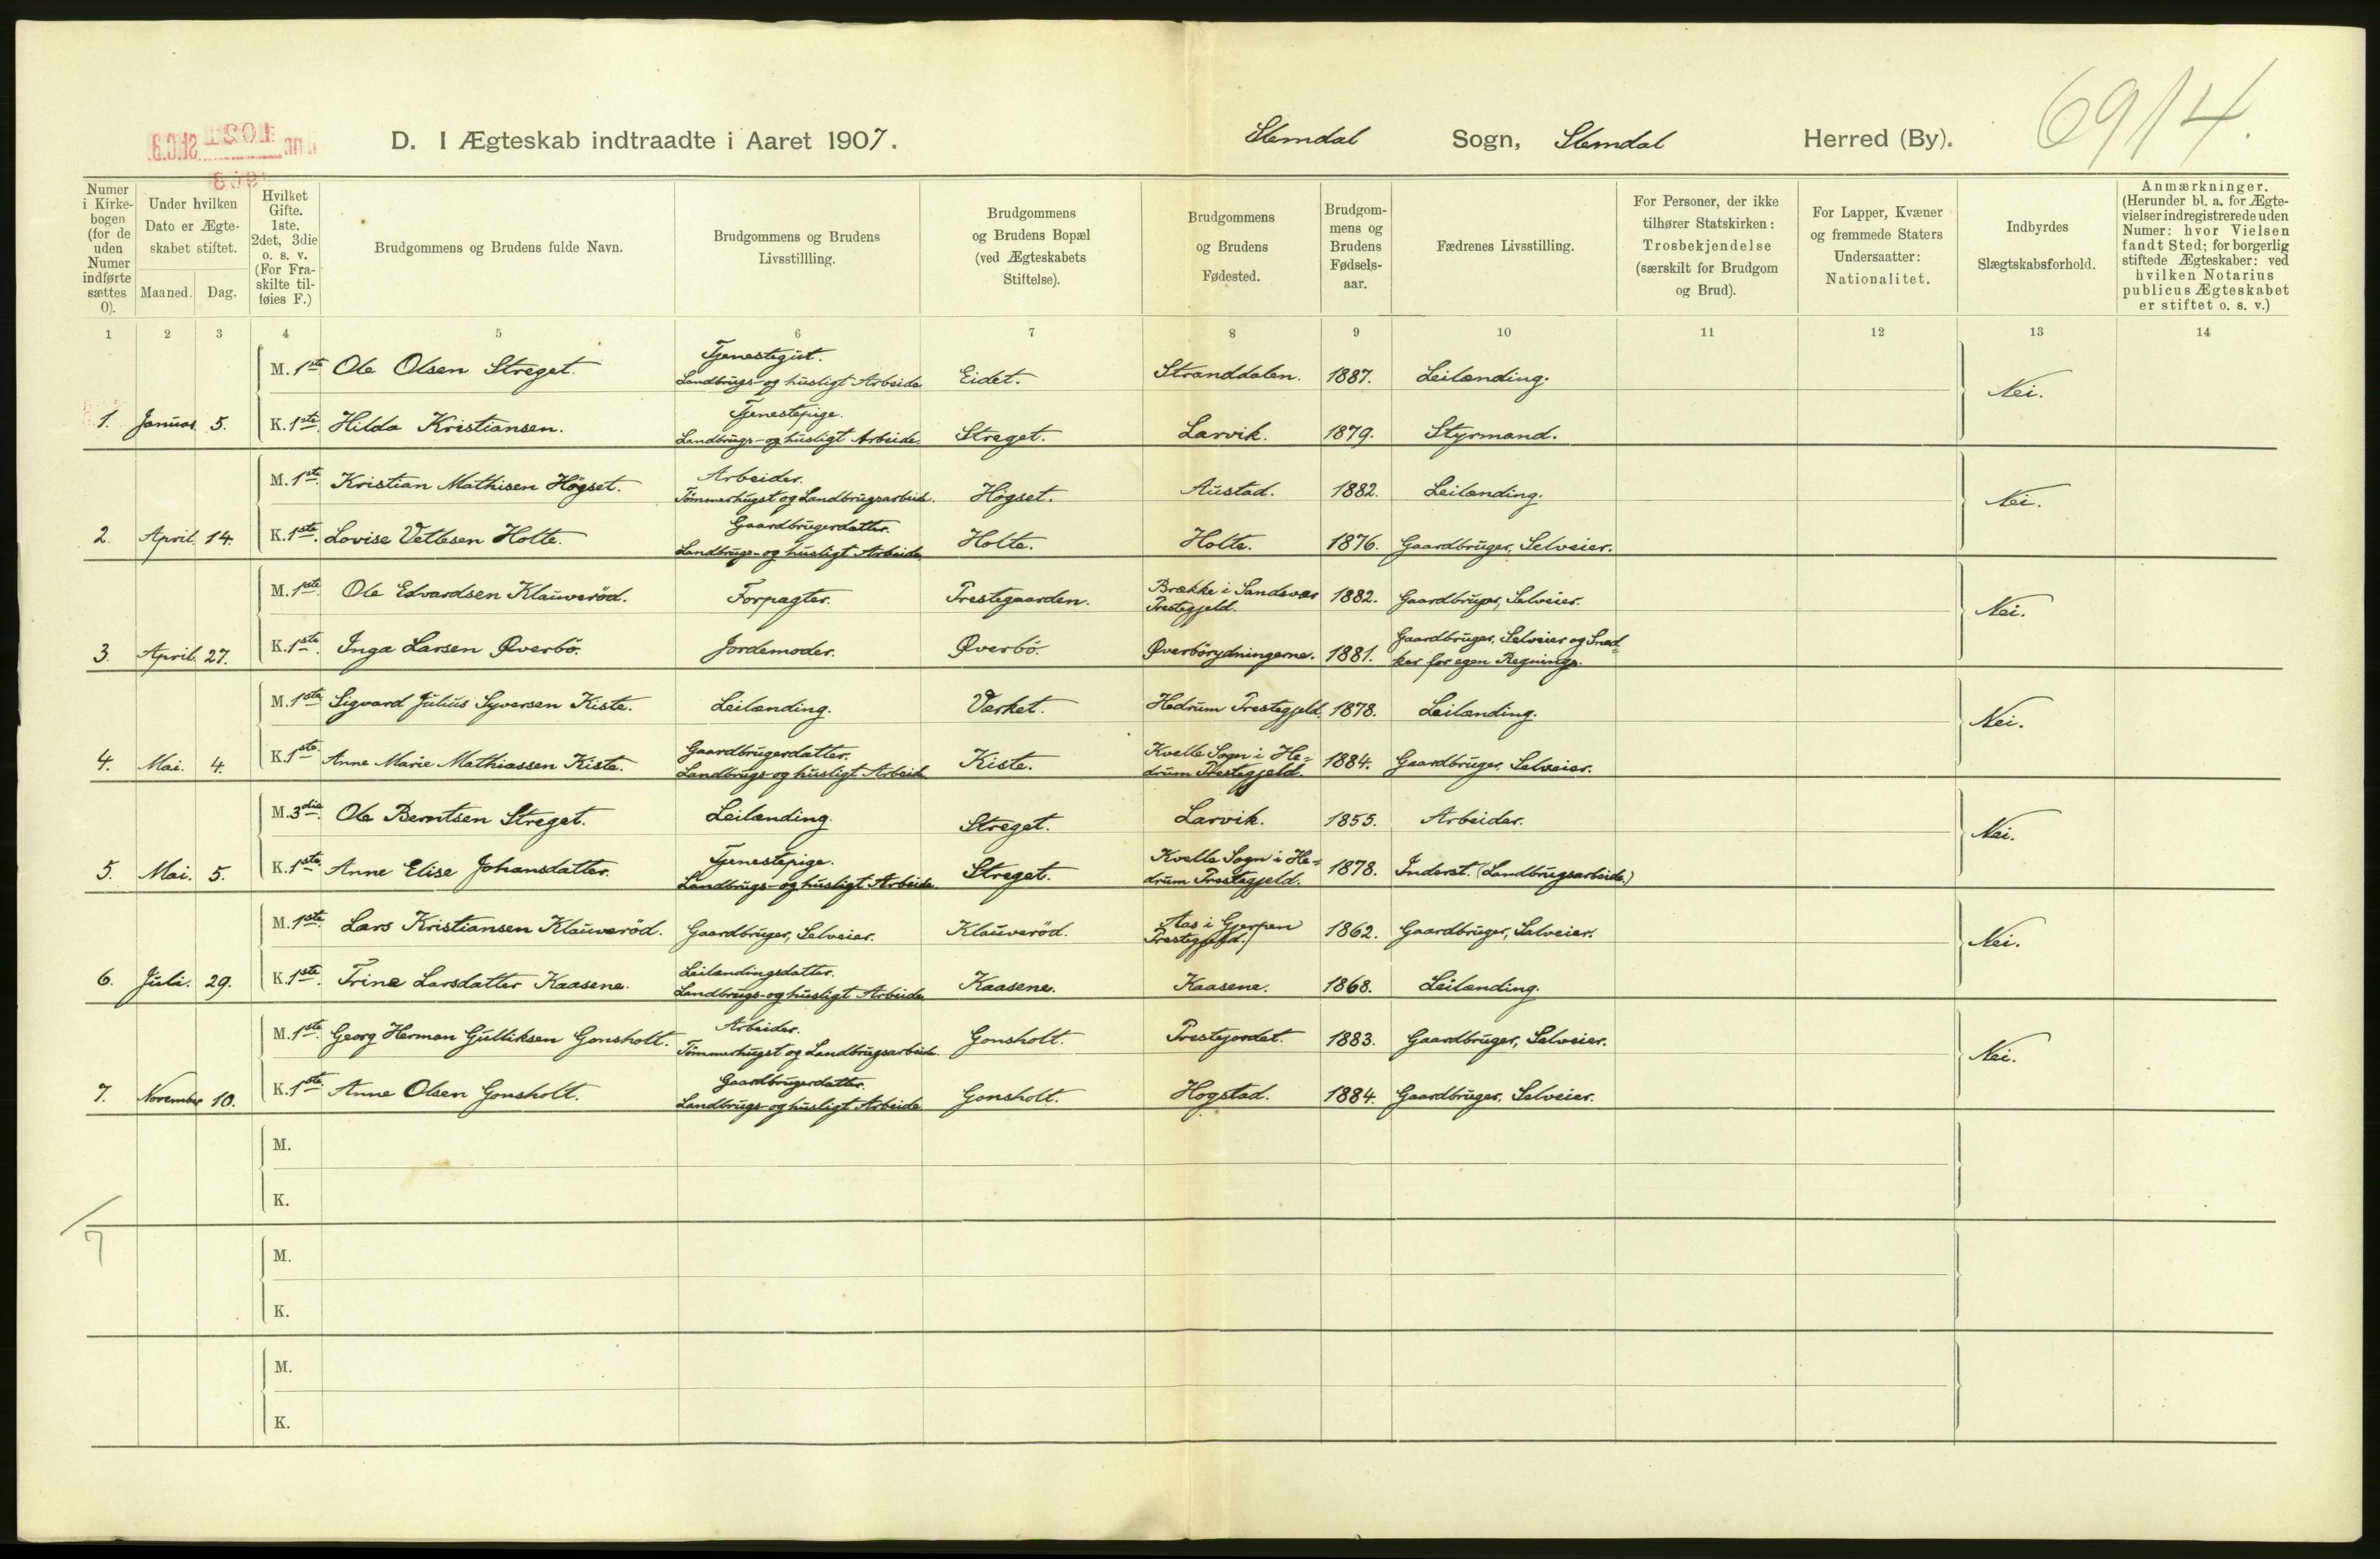 D. I Ægteskab indtraadte i Aaret 1907. Slemdal Sogn, Slemdal Herred (By). 69/14.
Numer i Kirke-bogen (for de uden Numer indførte sættes 0).
Under hvilken Dato er Ægte-skabet stiftet.
Maaned. Dag.
Hvilket Gifte. 1ste, 2det, 3die o. s. v. (For Fra-skilte til-føies F.)
Brudgommens og Brudens fulde Navn.
Brudgommens og Brudens Livsstillling.
Brudgommens og Brudens Bopæl (ved Ægteskabets Stiftelse).
Brudgommens og Brudens Fødested.
Brudgom-mens og Brudens Fødsels-aar.
Fædrenes Livsstilling.
For Personer, der ikke tilhører Statskirken: Trosbekjendelse (særskilt for Brudgom og Brud).
For Lapper, Kvæner og fremmede Staters Undersaatter: Nationalitet.
Indbyrdes Slægtskabsforhold.
Anmærkninger. (Herunder bl. a. for Ægte-vielser indregistrerede uden Numer: hvor Vielsen fandt Sted; for borgerlig stiftede Ægteskaber: ved hvilken Notarius publicus Ægteskabet er stiftet o. s. v.)
1 2 3 4 5 6 7 8 9 10 11 12 13 14
M. 1ste Ole Olsen Streget. Tjenestegut. Landbrugs- og husligt Arbeide Eidet. Stranddalen. 1887. Leilænding. Nei.
1. Januar 5. K. 1ste Hilda Kristiansen. Tjenestepige. Landbrugs- og husligt Arbeide. Streget. Larvik. 1879. Styrmand.
M. 1ste Kristian Mathisen Högset. Arbeider. Tömmerhugst og Landbrugsarbeid. Högset. Austad. 1882. Leilænding. Nei.
2. April 14. K. 1ste. Lovise Vetlesen Holte. Gaardbrugerdatter. Landbrugs- og husligt Arbeide. Holte. Holte. 1876. Gaardbruger, Selveier.
M. 1ste Ole Edvardsen Klauveröd. Forpagter. Prestegaarden. Brække i Sandevær Prestegjeld. 1882. Gaardbruger, Selveier. Nei.
3. April. 27. K. 1ste. Inga Larsen Øverbö. Jordemoder. Øverbö. Øverbörydningerne. 1881. Gaardbruger, Selveier og Sned=ker for egen Regning.
M. 1ste Sigvard Julius Syversen Kiste. Leilænding. Værket. Hedrum Prestegjeld. 1878. Leilænding. Nei.
4. Mai. 4. K. 1ste Anne Marie Mathiassen Kiste. Gaardbrugerdatter. Landbrugs- og husligt Arbeid. Kiste. Kvelle Sogn i He=drum Prestegjeld. 1884. Gaardbruger, Selveier.
M. 3die. Ole Berntsen Streget. Leilænding. Streget. Larvik. 1855. Arbeider. Nei.
5. Mai. 5. K. 1ste Anne Elise Johansdatter. Tjenestepige. Landbrugs- og husligt Arbeide. Streget. Kvelle Sogn i He=drum Prestegjeld. 1878. Inderst. (Landbrugsarbeide.)
M. 1ste. Lars Kristiansen Klauveröd. Gaardbruger, Selveier. Klauveröd. Aas i Gjerpen Prestegjeld. 1862. Gaardbruger, Selveier. Nei.
6. Juli. 29. K. 1ste. Trine Larsdatter Kaasene. Leilændingsdatter. Landbrugs- og husligt Arbeide. Kaasene. Kaasene. 1868. Leilænding.
M. 1ste. Georg Herman Gulliksen Gonsholt. Arbeider. Tömmerhugst og Landbrugsarbeid. Gonsholt. Prestejordet. 1883. Gaardbruger, Selveier. Nei.
7. November 10. K. 1ste Anne Olsen Gonsholt. Gaardbrugerdatter. Landbrugs- og husligt Arbeide Gonsholt. Hogstad. 1884. Gaardbruger, Selveier.
M.
K.
7
M.
K.
M.
K.